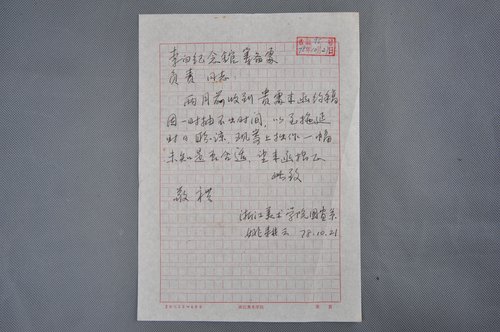 李白纪念馆筹备处
负责同志:
两月前收到贵处来函约稿
因一时抽不出时间,以至拖延
时日歉凉,现寄上拙作一幅
未知是否合适,望来函指正
此致
敬礼
浙江美术学院国画系
姚耕云 78.10.21
浙江美术学院